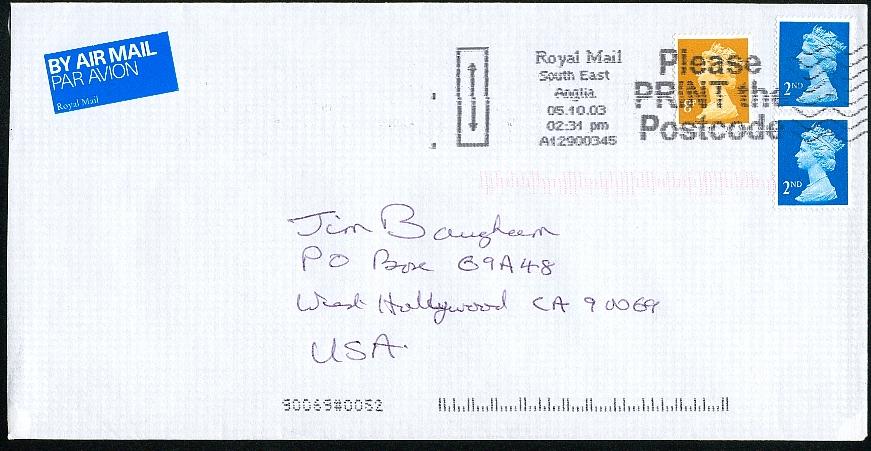 BY AIR MAIL
PAR AVION
Royal Mail
Royal Mail
South East
Anglia
05.10.03
02:31 pm
A12900345
Please
PRINT the
Postcode
2ND
2ND
Jim Baugheem
PO Box 69A48
West Hollywood CA 90069
USA.
90069#0052